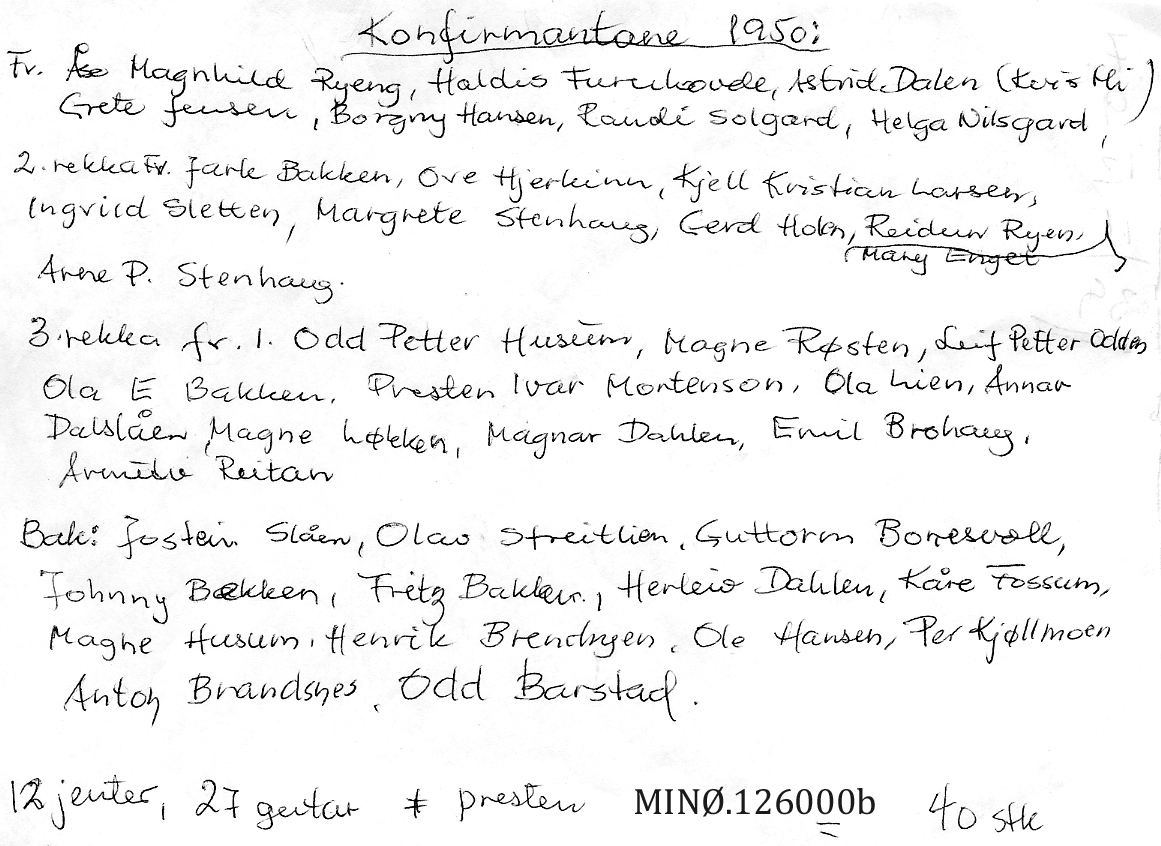 Konfirmantane 1950:
Fr. Åse Magnhild Ryeng, Haldis Furuhovde, Astrid Dalen (Kvis Mi)
Grete Jensen, Borgny Hansen, Randi Solgard, Helga Nilsgard,
2. rekka Fr. Jarle Bakken, Ove Hjerkinn, Kjell Kristian Larsen,
Ingvild Sletten, Margrete Stenhaug, Gerd Holen, Reidun Ryen,
(Mary Enget
Arne P. Stenhaug.
3. rekka fr. 1. Odd Petter Husum, Magne Røsten, Leif Petter Odden
Ola E Bakken, Presten Ivar Mortenson, Ola Lien, Annar
Dalslåen, Magne Løkken, Magnar Dahlen, Emil Brohaug,
Reitan
Bak: Jostein Slåen, Olav Streitlien, Guttorm Borresvoll,
Johnny Bækken, Fritz Bakken, Herleiv Dahlen, Kåre Fossum,
Magne Husum, Henrik Brendryen, Ole Hansen, Per Kjøllmoen
Anton Brandsnes, Odd Barstad.
12 jenter, 27 gutar + presten MINØ.126000b 40 stk